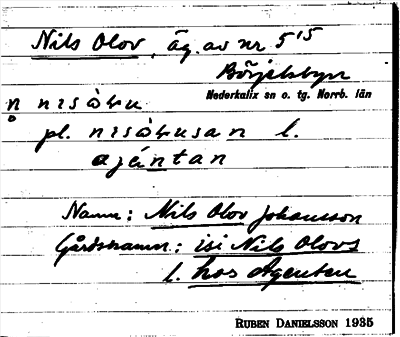 Nils Olov, äg. av nr 5¹⁵
Börjelsbyn
Nederkalix sn o. tg. Norrb. län
pl. l.
Namn: Nils Olov Johansson
Gårdsnamn: isi Nils Olovs
l. hos Agenten
RUBEN DANIELSSON 1935